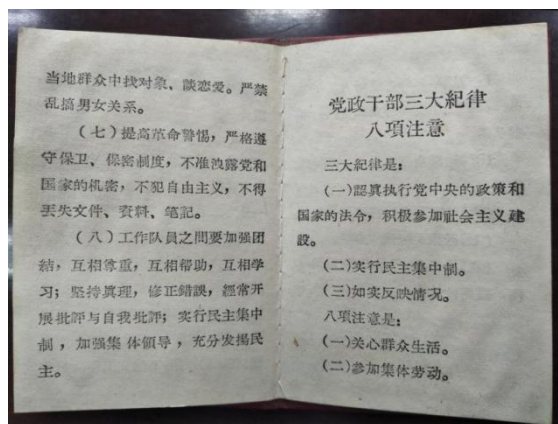 当地群众中找对象、談恋爱。严禁
乱搞男女关系。
（七）提高革命警惕，严格遵
守保卫、保密制度，不准洩露党和
国家的机密，不犯自由主义，不得
丟失文件、資料、笔記。
（八）工作队員之間要加强团
結，互相尊重，互相帮助，互相学
习；坚持眞理，修正錯誤，經常开
展批評与自我批評；实行民主集中
制，加强集体領导，充分发揚民
主。
党政干部三大紀律
八項注意
三大紀律是：
（一）認眞执行党中央的政策和
国家的法令，积极参加社会主义建
設。
（二）实行民主集中制。
（三）如实反映情况。
八項注意是：
（一）关心群众生活。
（二）参加集体劳动。